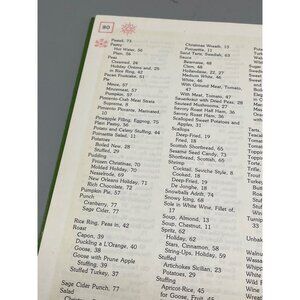 80
Pastel, 73
Pastry
Hot Water, 56
Plain, 56
Peas
Creamed, 24
Holiday Onions and, 25
in Rice Ring, 42
Pecan Fruitcake, 61
Pie
Mince, 57
Mincemeat, 57
Pumpkin, 57
Pimento-Crab Meat Strata
Supreme, 8
Pimento Picante, Marinated,
10
Pineapple Filling, Eggnog, 75
Plain Pastry, 56
Potato and Celery Stuffing, 44
Poinsettia Salad, 11
Potatoes
Boiled New, 28
Stuffed, 29
Pudding
Frozen Christmas, 70
Molded Holiday, 70
Nesselrode, 69
New Orleans Holiday, 71
Rich Chocolate, 72
Pumpkin Pie, 57
Punch
Cranberry, 77
Sage Cider, 77
Rice Ring, Peas in, 42
Roast
Capon, 39
Duckling a L'Orange, 40
Goose, 38
Goose with Prune Apple
Stuffing, 39
Stuffed Turkey, 37
Sage Cider Punch, 77
Salad
Christmas Wreath, 13
Poinsettia, 11
Sand Tarts, Swedish, 63
Sauce
Bearnaise, 48
Clam, 48
Hollandaise, 22, 27
Medium White, 46
White, 46
With Meat, Tomato,
47
With Meat, Tomato, 47
Sauerbraten with Dried Peas, 28
Sauteed Mushrooms, 26
Savory Goat Mushrooms, 49
Savory Roast Ham, 36
Scalloped Sweet Potatoes and
Apples, 31
Scallops
Deep-Fried, 19
Fried, 18
Scottish Shortbread, 65
Sesame Seed Candy, 73
Shortbread, Scottish, 65
Shrimp
Cocktail, Seviche Style, 8
Cooked, 18
Deep-Fried, 19
De Jonghe, 18
Snowballs Adrift, 74
Snowy Icing, 68
Sole in White Wine, Fillet of,
17
Soup, Almond, 13
Soup, Chestnut, 11
Spritz, 62
Holiday, 62
Stars, Cinnamon, 58
String-Ups, Holiday, 59
Stuffed
Artichokes Sicilian, 23
Potatoes, 29
Stuffing
Apricot-Rice, 45
for Goose, Fruit, 45